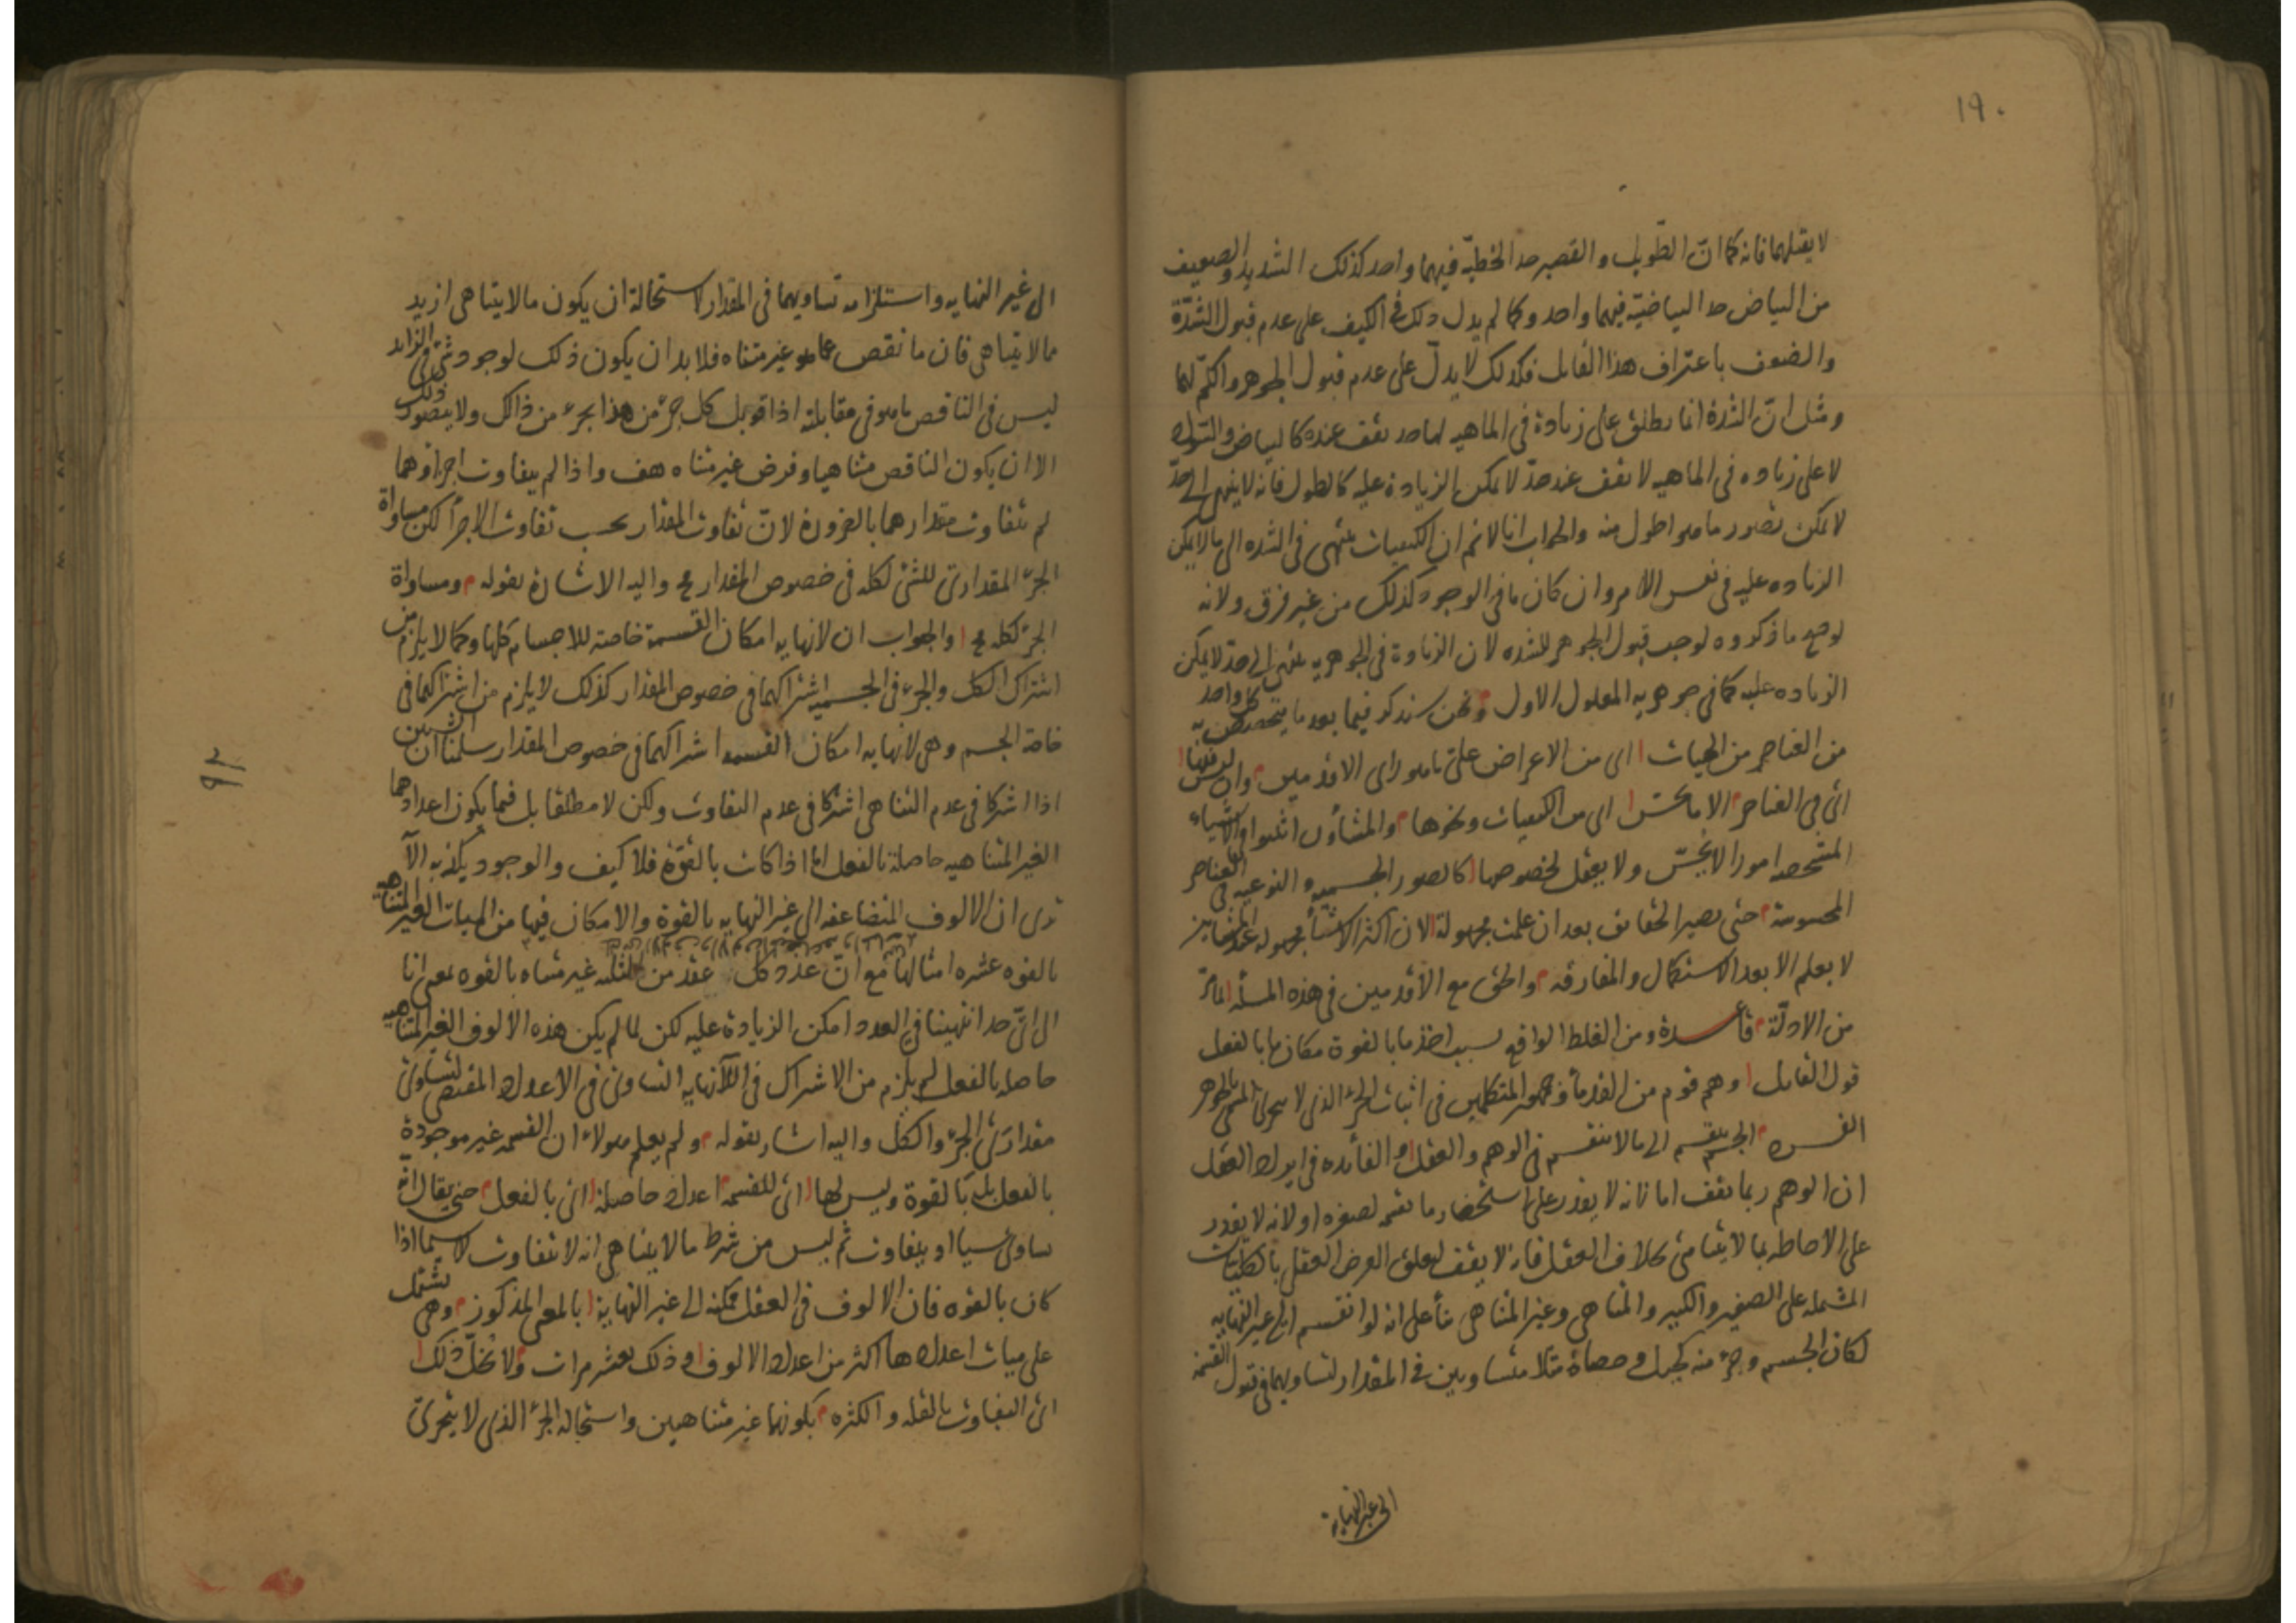 ١٩٠
لا يقبلهما فانه كما انّ الطويل والقصير حد الخطيّة فيهما واحد كذلك الشديد والضعيف
من البياض حد البياضيّة فيهما واحد وكما لم يدل ذلك فى الكيف على عدم قبول الشدّة
والضعف باعتراف هذا القايل فكذلك لا يدلّ على عدم قبول الجوهر والكمّ لهما
ومثل انّ الشدة انما يطلق على زيادة فى الماهيه لها حد تقف عنده كالبياض والسواد
لا على زياده فى الماهيه لا تقف عند حدّ لا يمكن الزيادة عليه كالطول فانه لا ينتهى الى حدّ
لا يمكن تصور ما هو اطول منه والجواب انا لا نم ان الكيفيات تنتهى فى الشده الى ما لا يمكن
الزياده عليه فى نفس الامر وان كان ما فى الوجود كذلك من غير فرق ولانه
لو صح ما ذكروه لوجب قبول الجوهر للشده لان الزيادة فى الجوهريه تنتهى الى حدّ لا يمكن
الزياده عليه كما فى جوهريه المعلول الاول ونحن سنذكر فيما بعد ما يتخصص به كل واحد
من العناصر من الهيات اى من الاعراض على ما هو راى الاقدمين وان ليس فيها
اى فى العناصر الا ما يحسّ اى من الكيفيات ونحوها والمشاؤن اثبتوا فى الاشياء
المحسوسة حتى يصير الحقايق بعد ان علمت مجهولة لان اكثر الاشيا مجهوله عند المشايين
لا يعلم الا بعد الاستكمال والمفارقه والحق مع الاقدمين فى هذه المسئله لما مرّ
من الادلّة قاعدة ومن الغلط الواقع بسبب اخذ ما بالقوة مكان ما بالفعل
قول القايل وهم قوم من القدمأ وجمهور المتكلمين فى اثبات الجزء الذى لا يتجزى المسمى بالجوهر
الفرد الجسم ينقسم الى ما لا ينقسم فى الوهم والعقل والفائده فى ايراد العقل
ان الوهم ربما يقف اما لانه لا يقدر على استحضار ما يقسمه لصغره او لانه لا يقدر
على الاحاطه بما لا يتناهى بخلاف العقل فانه لا يقف لتعلق الفرض العقلى بالكليات
المشتمله على الصغير والكبير والمتناهى وغير المتناهى بنأ على انه لو انقسم الى غير النهايه
لكان الجسم وجزء منه كجبل وحصاة مثلا متساويين فى المقدار لتساويهما فى قبول القسمة
الى غير النهاية
الى غير النهايه واستلزامه تساويهما فى المقدار لاستحالة ان يكون ما لا يتناهى ازيد
مما لا يتناهى فان ما نقص عما هو غير متناه فلا بد ان يكون ذلك لوجود شئ فى الزايد
ليس فى الناقص ما هو فى مقابلته اذا قوبل كل جزء من هذا بجزء من ذالك ولا يتصور ذلك
الا ان يكون الناقص متناهيا وفرض غير متناه هف واذا لم يتفاوت اجزاؤهما
لم يتفاوت مقدارهما بالضرورة لانّ تفاوت المقدار بحسب تفاوت الاجزأ لكن مساواة
الجزء المقدارى للشئ لكله فى خصوص المقدار مح واليه الاشارة بقوله ومساواة
الجزء لكله مح والجواب ان لانهايه امكان القسمة خاصة للاجسام كلها وكما لا يلزم من
اشتراك الكل والجزء فى الجسميه اشتراكهما فى خصوص المقدار كذلك لا يلزم من اشتراكهما فى
خاصة الجسم وهى لانهايه امكان القسمه اشتراكهما فى خصوص المقدار سلمنا ان الشيئين
اذا اشتركا فى عدم التناهى اشتركا فى عدم التفاوت ولكن لا مطلقا بل فيما يكون اعدادهما
الغير المتناهيه حاصلة بالفعل اما اذا كانت بالقوّة فلا كيف والوجود يكذبه الا
ترى ان الالوف المتضاعفه الى غير النهايه بالقوة والامكان فيها من المئات الغير المتناهيه
بالقوه عشره امثالها مع انّ عدد كل عقد من غير متناه بالقوه بمعنى انا
الى اىّ حد انتهينا فى العدد امكن الزيادة عليه لكن لما لم يكن هذه الالوف الغير المتناهيه
حاصله بالفعل لم يلزم من الاشتراك فى اللانهايه التساوى فى الاعداد المقتضى لتساوى
مقدارى الجزء والكل واليه اشار بقوله ولم يعلم هولاء ان القسمه غير موجودة
بالفعل بل بالقوة وليس لها اى للقسمه اعداد حاصلة اى بالفعل حتى يقال انه
يساوى شيأ او يتفاوت ثم ليس من شرط ما لا يتناهى انه لا يتفاوت لا سيما اذا
كان بالقوه فان الالوف فى العقل ممكنه الى غير النهاية بالمعنى المذكور وهى تشتمل
على ميات اعدادها اكثر من اعداد الالوف وذلك بعشر مرات ولا يخلّ ذلك
اى التفاوت بالقله والكثره بكونها غير متناهيين واستحاله الجزء الذى لا يتجزى
٩٢